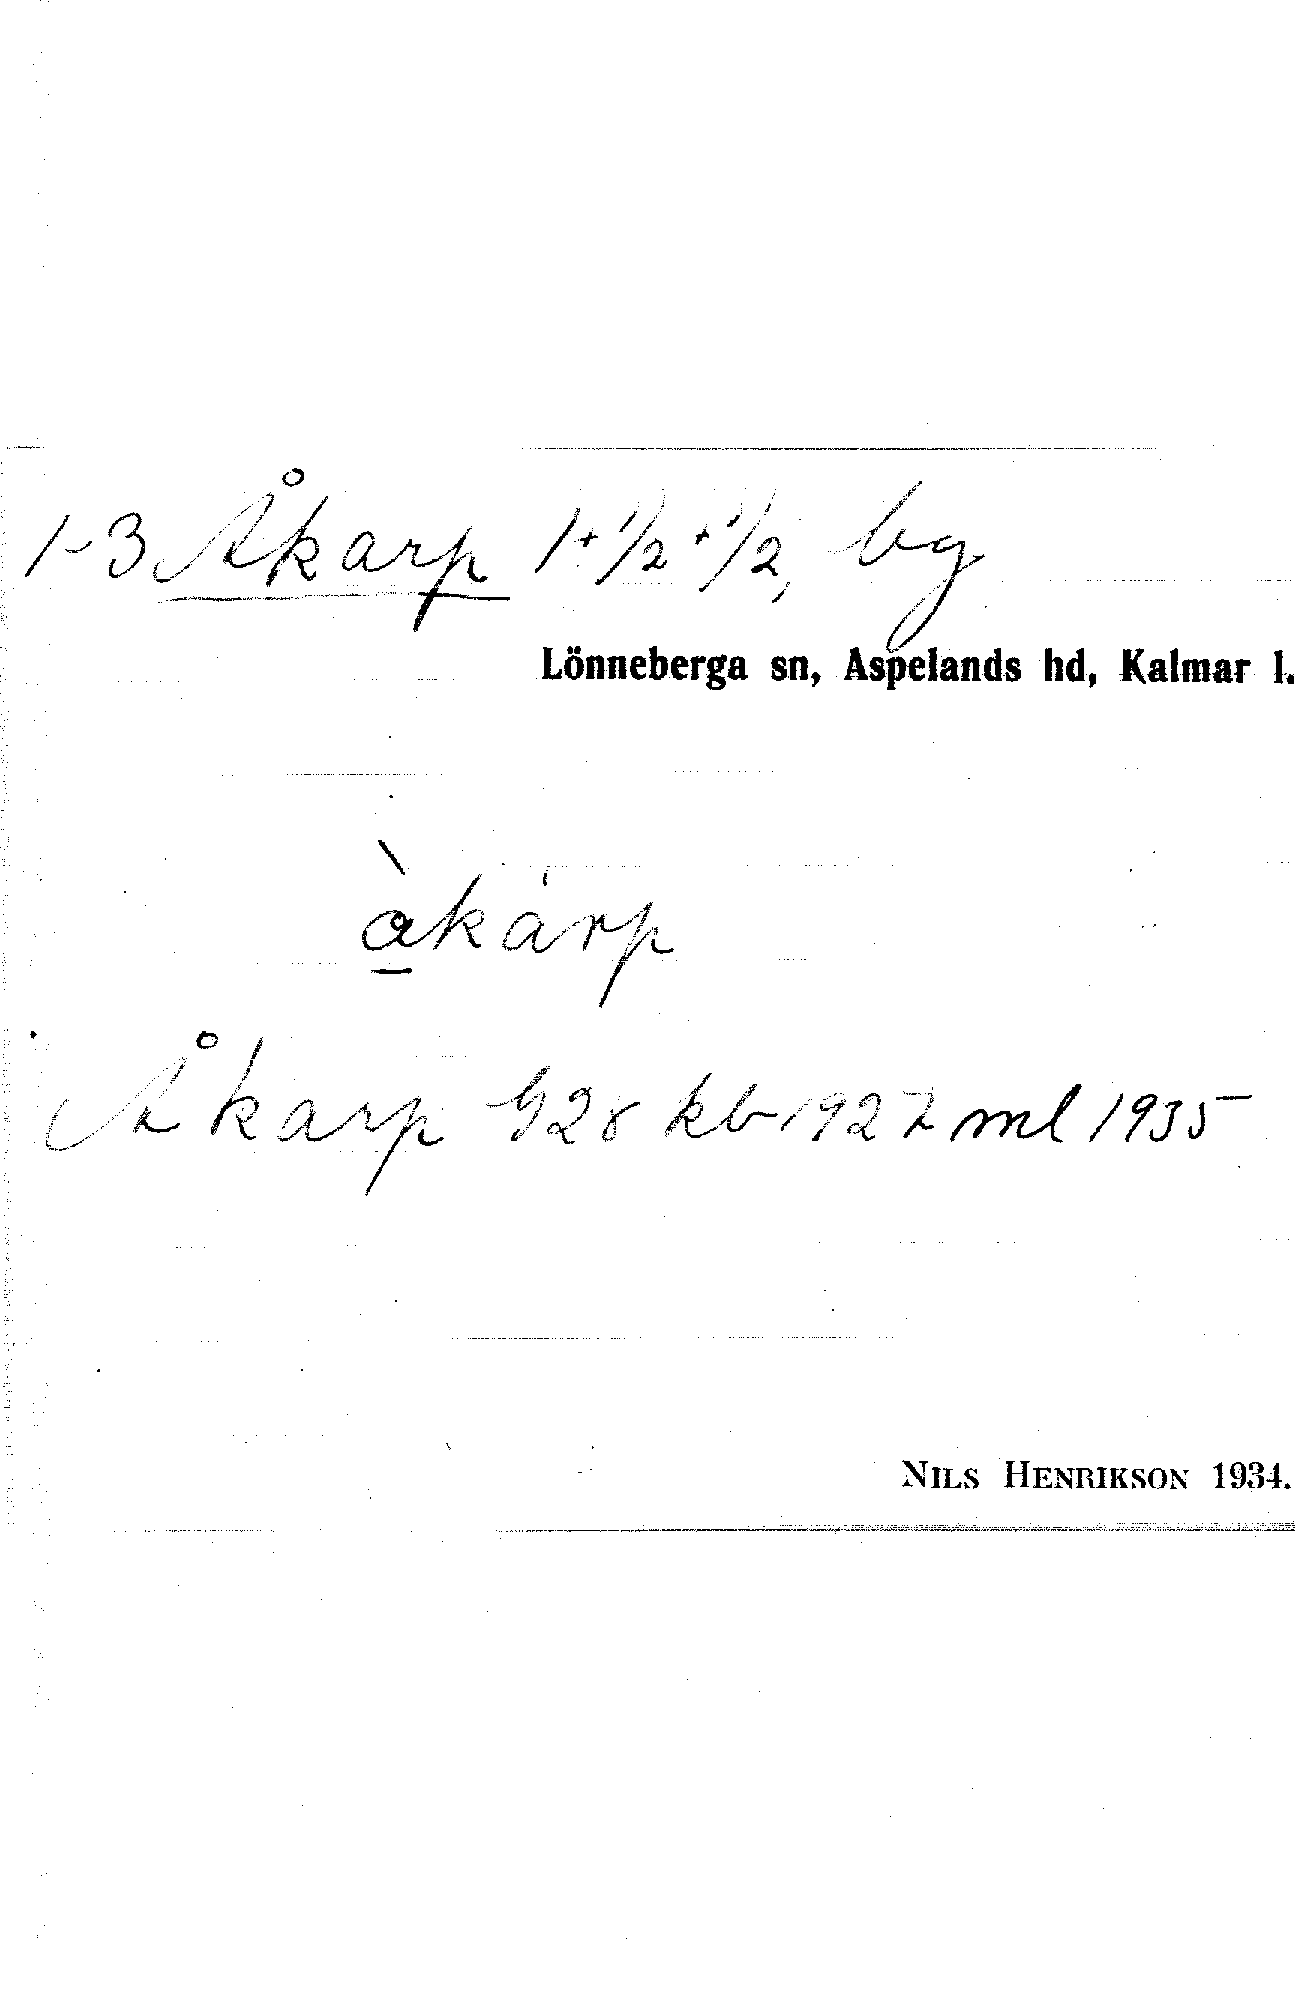 1-3 Åkarp 1+1/2+1/2, bg
Lönneberga sn, Aspelands hd, Kalmar l.
åkàrp
Åkarp G28 kb 1927 ml 1935
NILS HENRIKSON 1934.